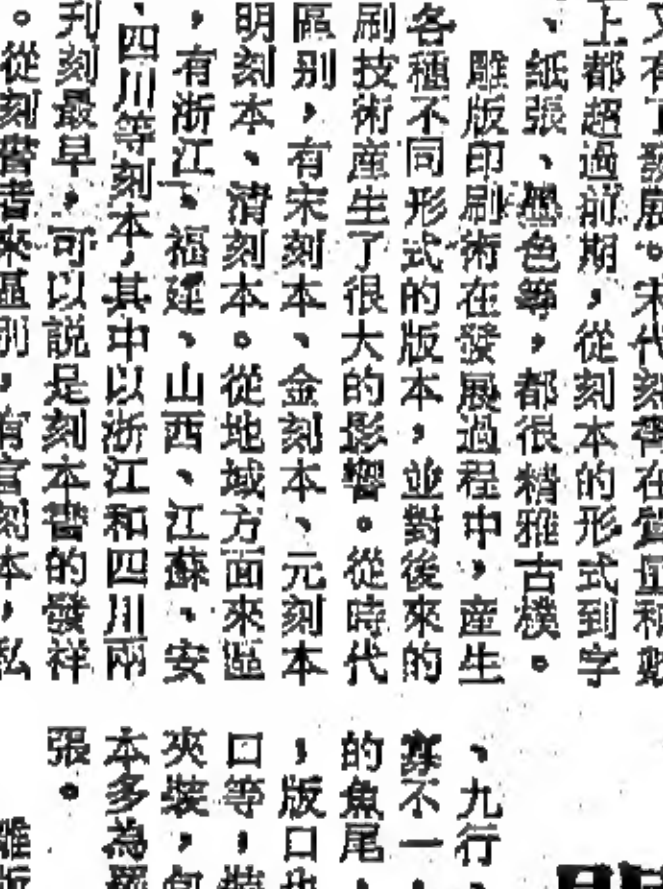 又有了發展。宋代刻書在
上都超過前期，從刻本的形式到字
、紙張、墨色等，都很精雅古樸。
雕版印刷術在發展過程中，産生
各種不同形式的版本，並對後來的
刷技術産生了很大的影響。從時代
區别，有宋刻本、金刻本、元刻本
明刻本、清刻本。從地域方面來區
，有浙江、福建、山西、江蘇、安
、四川等刻本，其中以浙江和四川兩
刋刻最早，可以説是刻本書的發祥
。從刻書者來區别，有官刻本，私
、九行、
寡不一
的魚尾，
，版口
口等，
夾裝，
本多為
張。
雕版